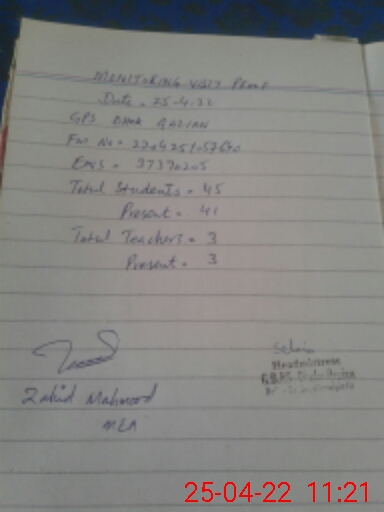 MONITORING VISIT PROOF
Date = 25-4-22
GPS DHOK GAZIAN
EMIS = 37370205
Total Students = 45
Present = 41
Total Teachers = 3
Present = 3
Zahid Mahmood
MEA
Headmistress
25-04-22 11:21